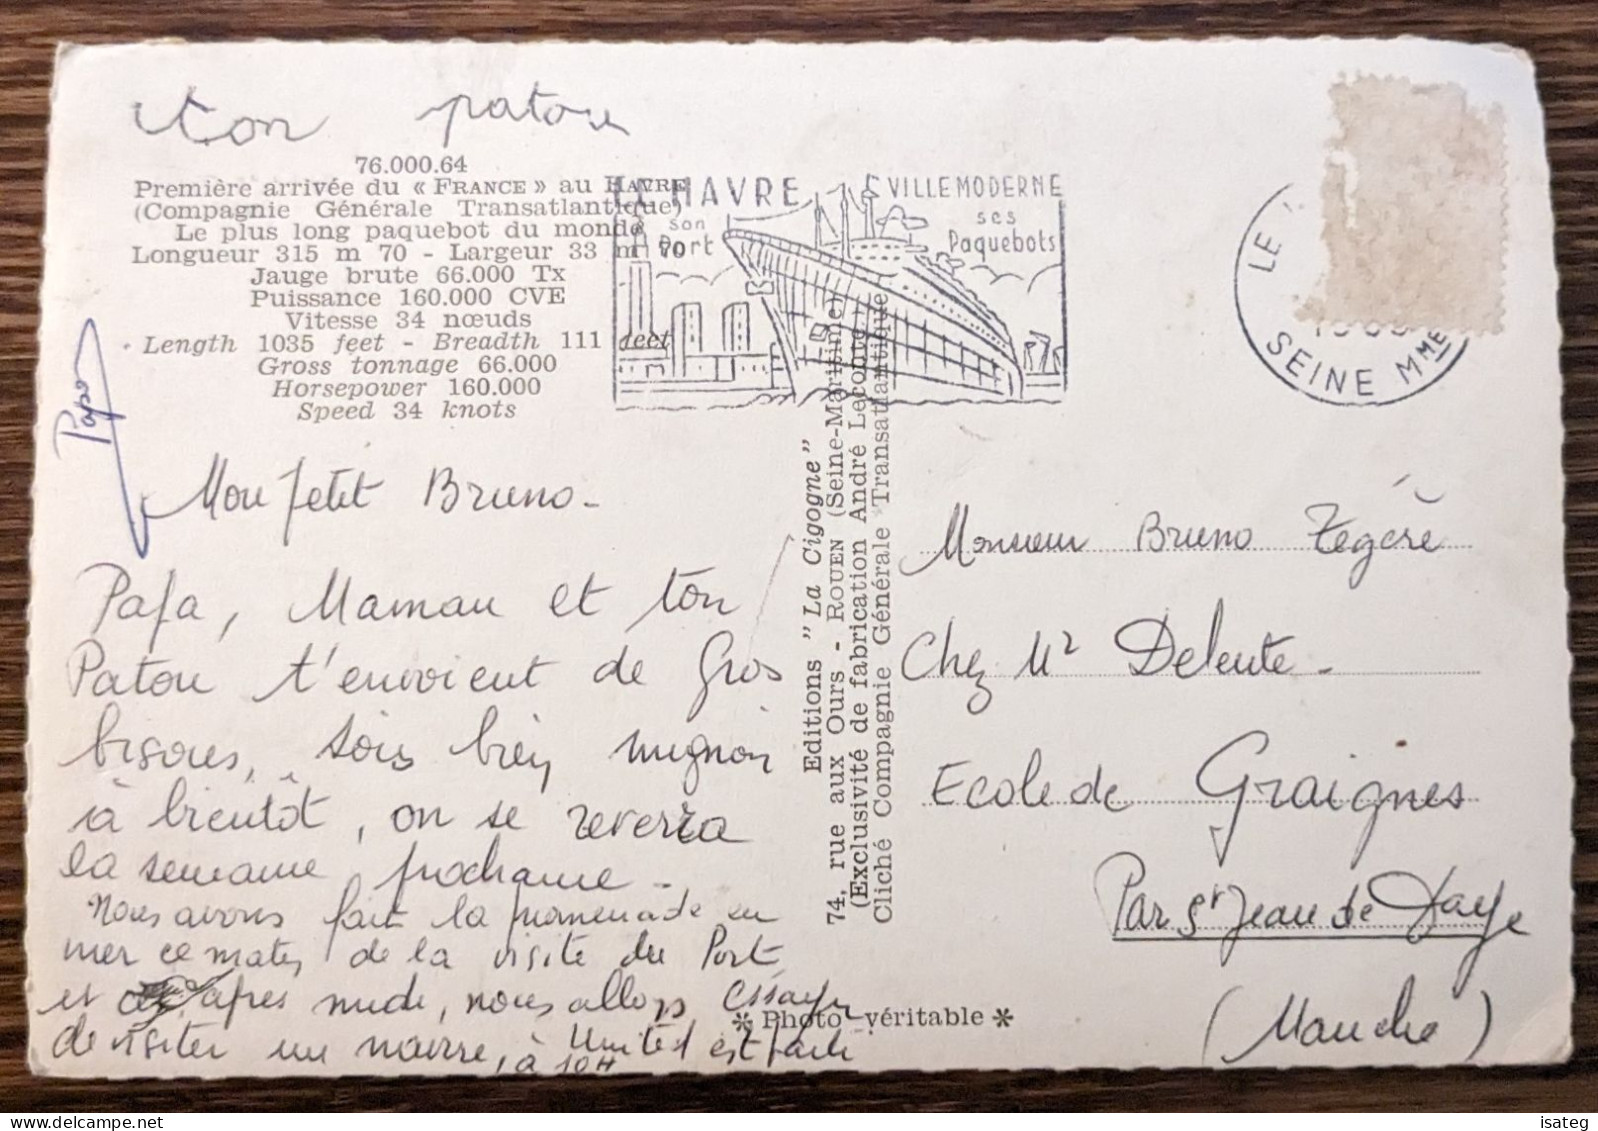 ton patou
76.000.64
Première arrivée du « FRANCE » au HAVRE
(Compagnie Générale Transatlantique)
Le plus long paquebot du monde
Longueur 315 m 70 - Largeur 33 m 70
Jauge brute 66.000 Tx
Puissance 160.000 CVE
Vitesse 34 nœuds
Length 1035 feet - Breadth 111 feet
Gross tonnage 66.000
Horsepower 160.000
Speed 34 knots
LE HAVRE
Son
Port
VILLE MODERNE
ses
Paquebots
LE
SEINE Mme
Papa
Mon petit Bruno-
Papa, Maman et ton
Patou t'envoient de Gros
bisous, sois bien mignon
à bientôt, on se reverra
la semaine prochaine -
Nous avons fait la promenade en
mer ce matin de la visite du Port
et après midi, nous allons essayer
de visiter un navire, United est parti
à 10H
Editions "La Cigogne"
74, rue aux Ours - ROUEN (Seine-Maritime)
(Exclusivité de fabrication André Leconte)
Cliché Compagnie Générale Transatlantique
* Photo véritable *
Monsieur Bruno Tegéré
Chez Mr Delente -
Ecole de Graignes
Par St Jean de Daye
(Manche)
isateg